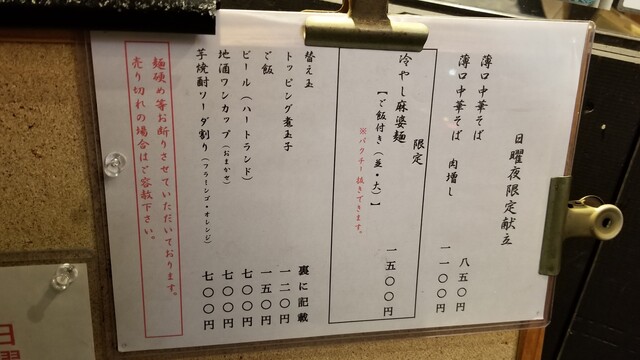 日曜夜限定献立
薄口中華そば 八五〇円
薄口中華そば 肉増し 一一〇〇円
限定
冷やし麻婆麺 一五〇〇円
【ご飯付き（並・大）】
※パクチー抜きできます。
替え玉 裏に記載
トッピング煮玉子 一二〇円
ご飯 一五〇円
ビール（ハートランド） 七〇〇円
地酒ワンカップ（おまかせ） 七〇〇円
芋焼酎ソーダ割り（フラミンゴ・オレンジ） 七〇〇円
麺硬め等お断りさせていただいております。
売り切れの場合はご容赦下さい。
日曜